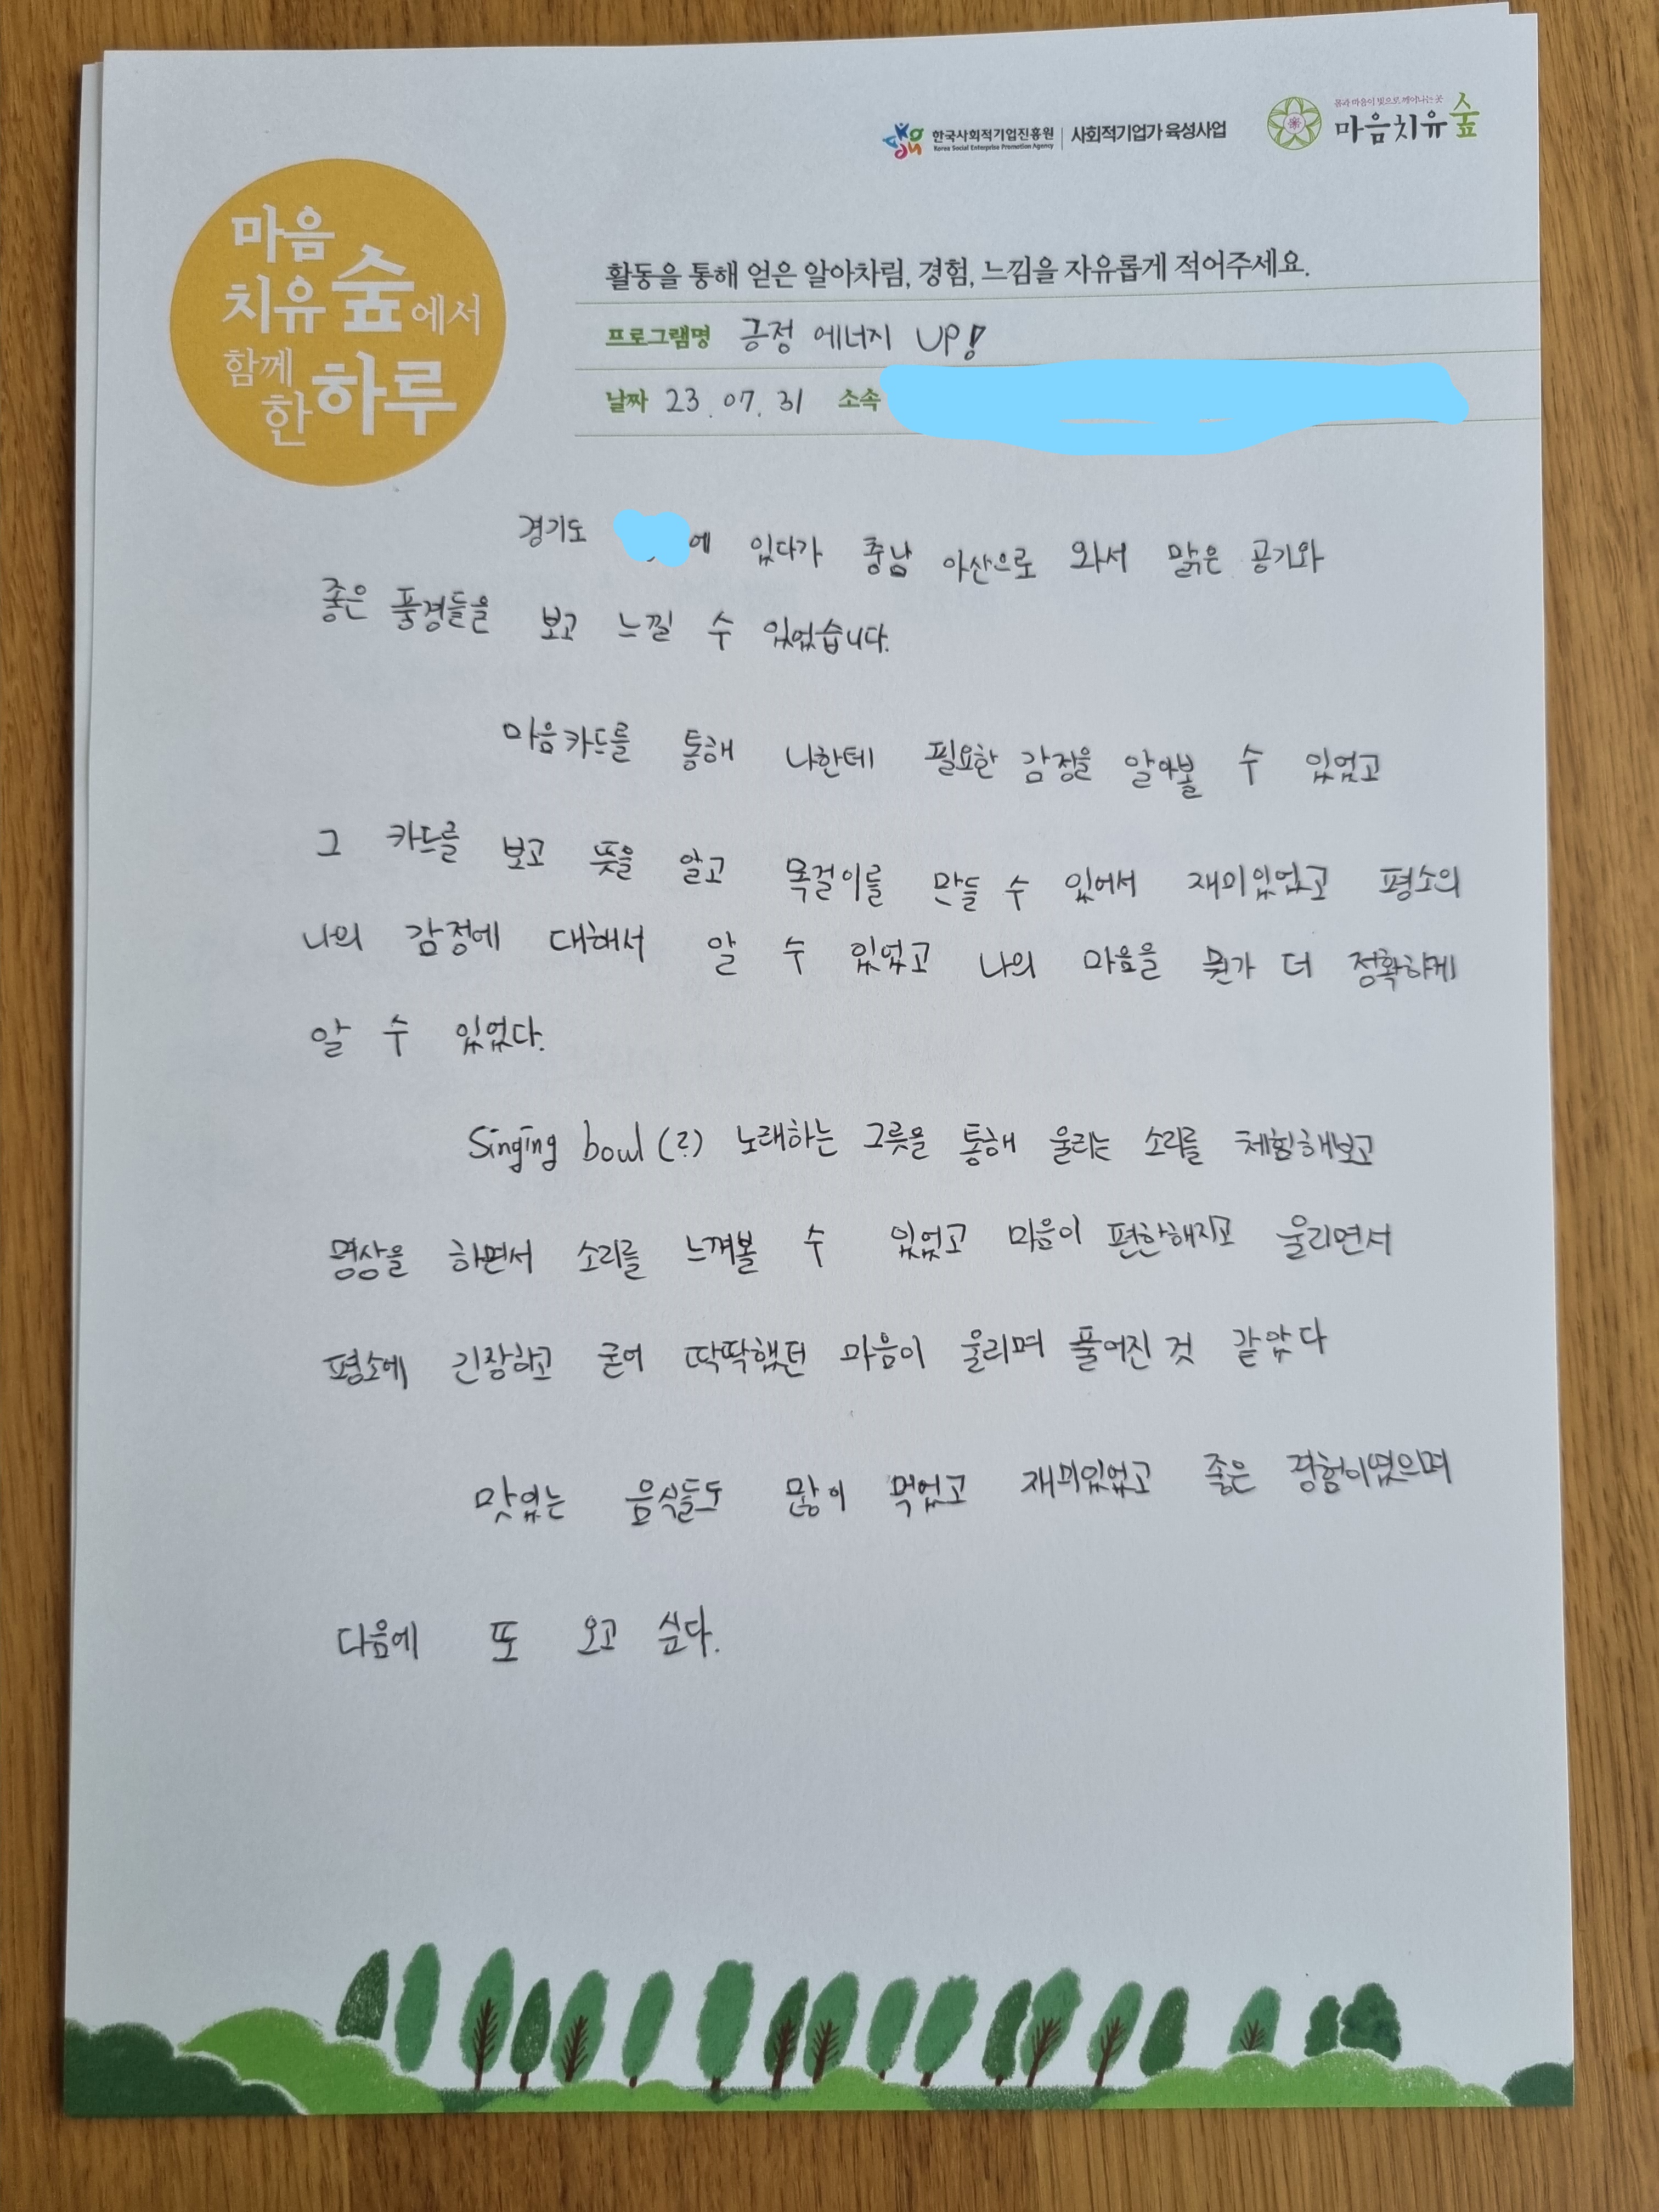 한국사회적기업진흥원
Korea Social Enterprise Promotion Agency
사회적기업가 육성사업
몸과 마음이 빛으로 깨어나는 곳
마음치유숲
마음
치유숲에서
함께
한하루
활동을 통해 얻은 알아차림, 경험, 느낌을 자유롭게 적어주세요.
프로그램명 긍정 에너지 UP!
날짜 23. 07. 31 소속
경기도 에 있다가 충남 아산으로 와서 맑은 공기와
좋은 풍경들을 보고 느낄 수 있었습니다.
마음카드를 통해 나한테 필요한 감정을 알아볼 수 있었고
그 카드를 보고 뜻을 알고 목걸이를 만들 수 있어서 재미있었고 평소의
나의 감정에 대해서 알 수 있었고 나의 마음을 뭔가 더 정확하게
알 수 있었다.
Singing bowl (?) 노래하는 그릇을 통해 울리는 소리를 체험해보고
명상을 하면서 소리를 느껴볼 수 있었고 마음이 편한해지고 울리면서
평소에 긴장하고 굳어 딱딱했던 마음이 울리며 풀어진 것 같았다
맛있는 음식들도 많이 먹었고 재미있었고 좋은 경험이였으며
다음에 또 오고 싶다.